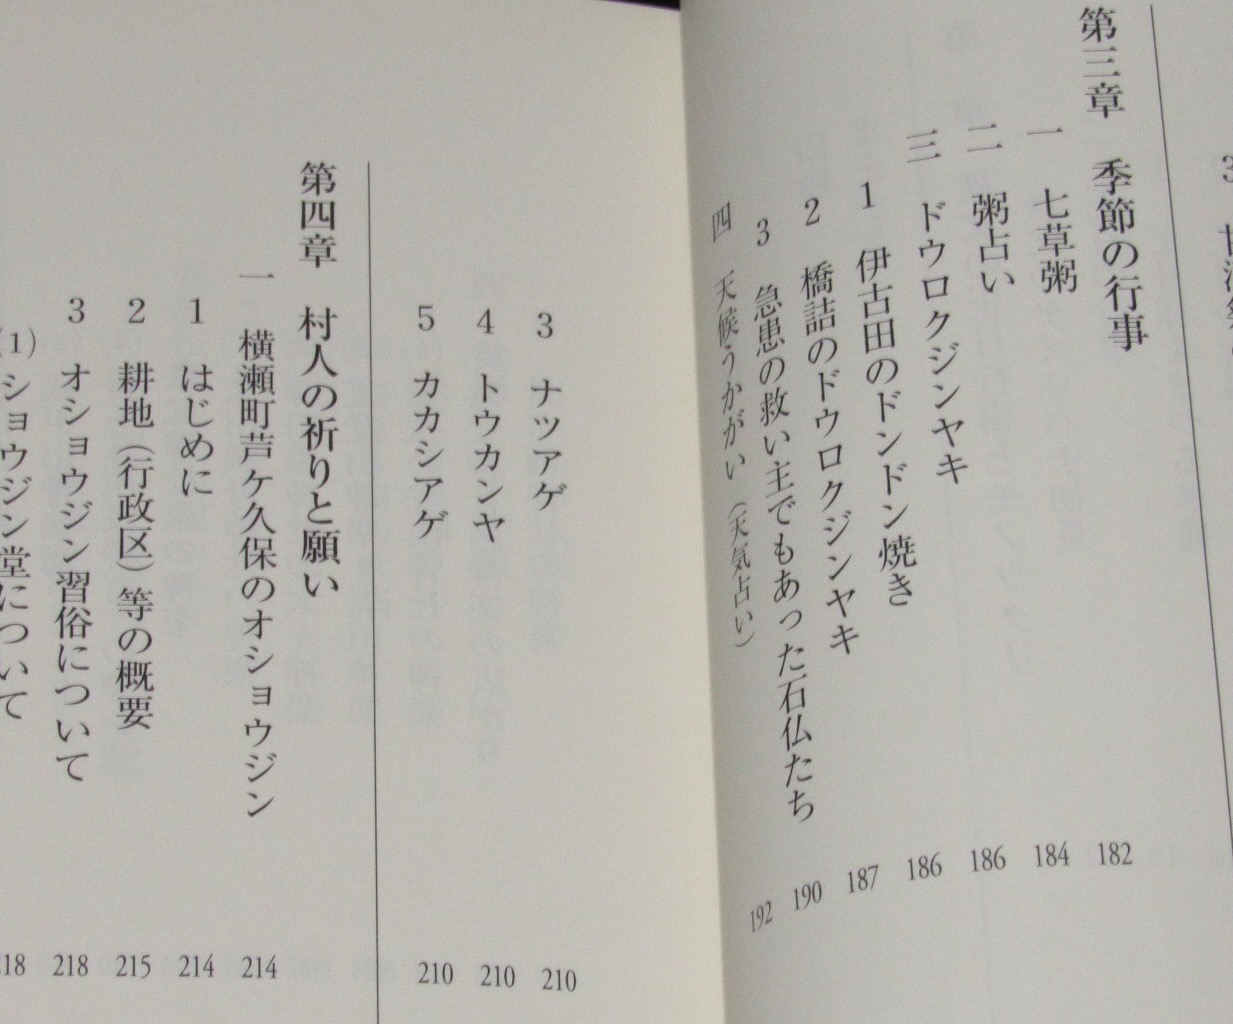 第三章　季節の行事
一　七草粥　182
二　粥占い　184
三　ドウロクジンヤキ　186
1　伊古田のドンドン焼き　186
2　橋詰のドウロクジンヤキ　187
3　急患の救い主でもあった石仏たち　190
四　天候うかがい（天気占い）　192
3　ナツアゲ　210
4　トウカンヤ　210
5　カカシアゲ　210
第四章　村人の祈りと願い
一　横瀬町芦ケ久保のオショウジン　214
1　はじめに　214
2　耕地（行政区）等の概要　215
3　オショウジン習俗について　218
(1)　ショウジン堂について　218